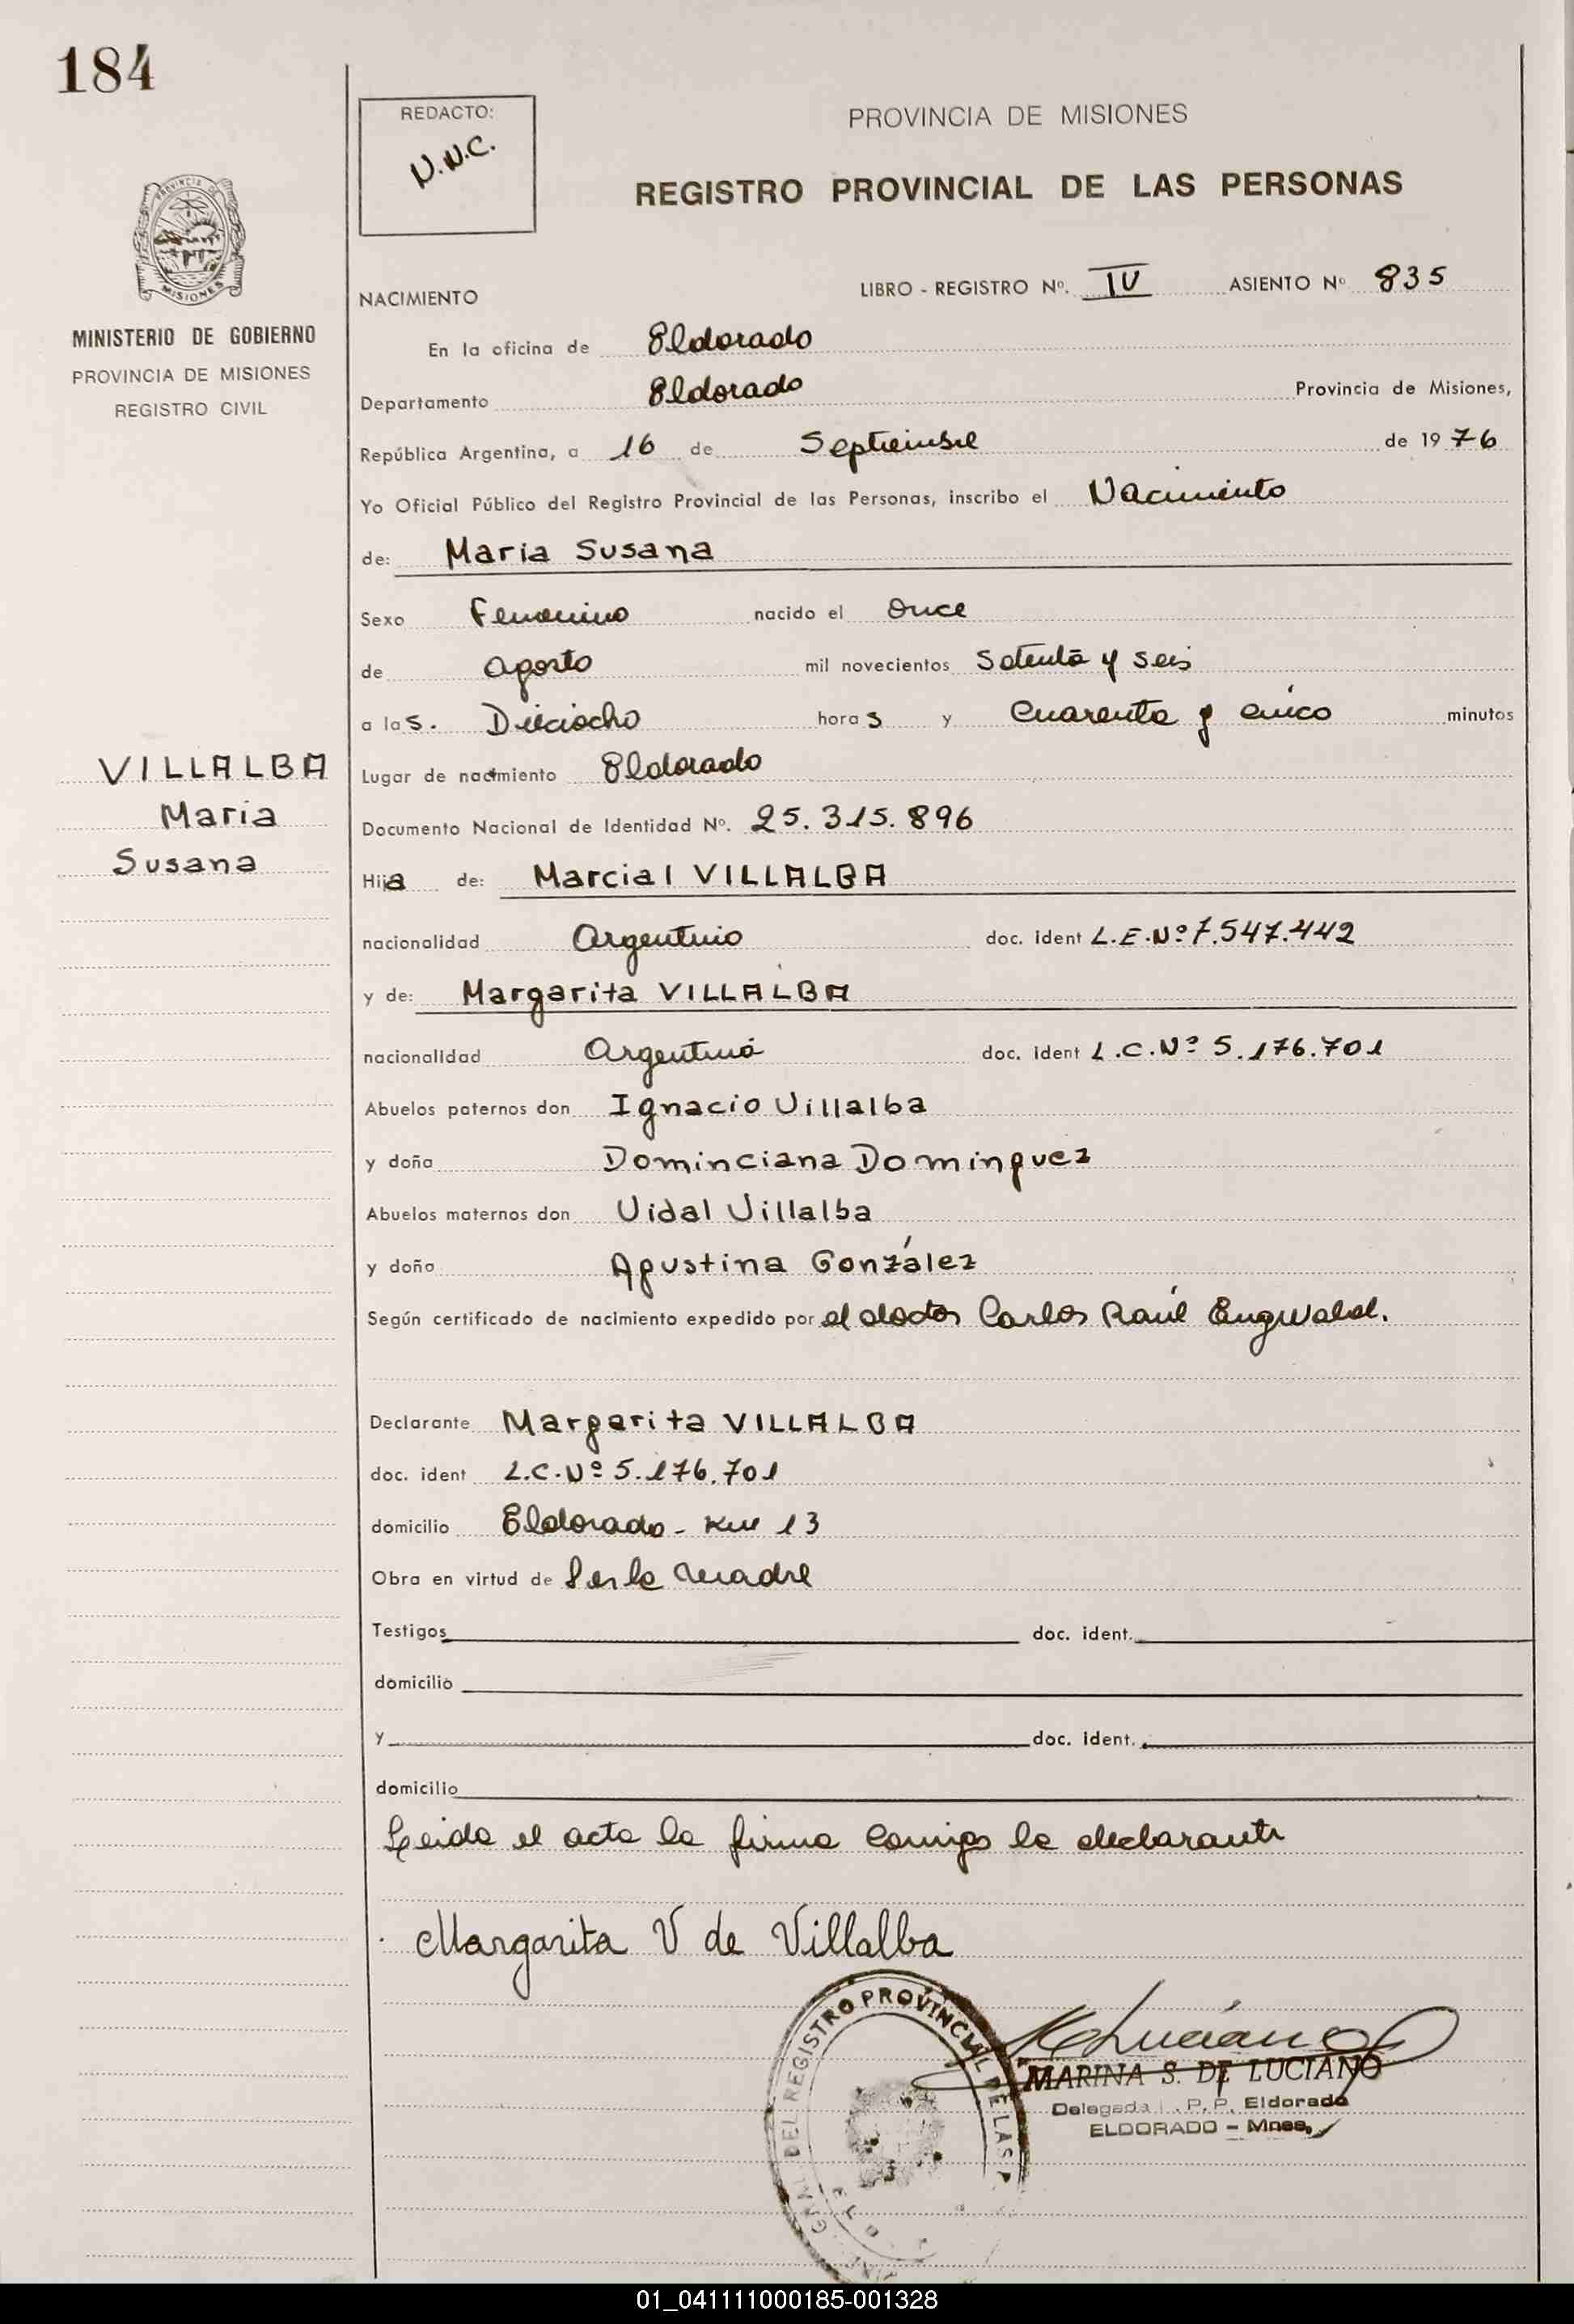 184
REDACTO:
N.N.C.
PROVINCIA DE MISIONES
REGISTRO PROVINCIAL DE LAS PERSONAS
PROVINCIA DE
MISIONES
MINISTERIO DE GOBIERNO
PROVINCIA DE MISIONES
REGISTRO CIVIL
NACIMIENTO LIBRO - REGISTRO Nº. IV ASIENTO Nº 835
En la oficina de Eldorado
Departamento Eldorado Provincia de Misiones,
República Argentina, a 16 de Septiembre de 1976
Yo Oficial Público del Registro Provincial de las Personas, inscribo el Nacimiento
de: Maria Susana
Sexo Femenino nacido el once
de agosto mil novecientos setenta y seis
a las. Dieciocho horas y Cuarenta y cinco minutos
VILLALBA
Maria
Susana
Lugar de nacimiento Eldorado
Documento Nacional de Identidad Nº. 25.315.896
Hija de: Marcial VILLALBA
nacionalidad Argentino doc. ident L.E.Nº 7.547.442
y de: Margarita VILLALBA
nacionalidad Argentina doc. ident L.C.Nº 5.176.701
Abuelos paternos don Ignacio Villalba
y doña Dominciana Dominguez
Abuelos maternos don Vidal Villalba
y doña Agustina González
Según certificado de nacimiento expedido por el doctor Carlos Raúl Engwald.
Declarante Margarita VILLALBA
doc. ident L.C.Nº 5.176.701
domicilio Eldorado - Km 13
Obra en virtud de Ser la madre
Testigos doc. ident.
domicilio
y doc. ident.
domicilio
Leida el acta la firma conmigo la declarante
Margarita V de Villalba
GRAL DEL REGISTRO PROVINCIAL DE LAS P
MARINA S. DE LUCIANO
Delegada P. P. Eldorado
ELDORADO - Mnes.
01_041111000185-001328